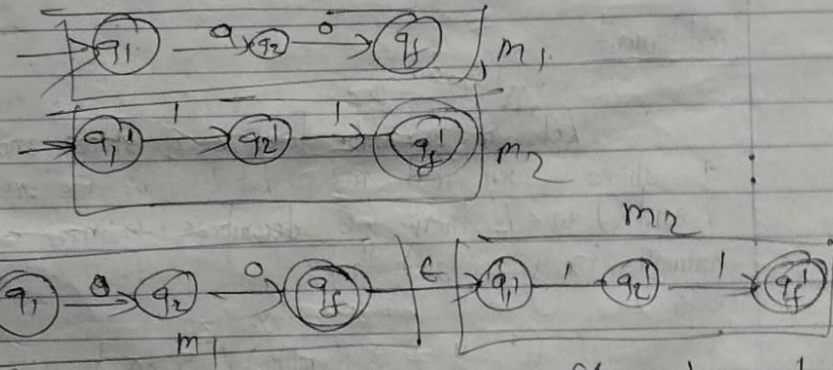 q1 0 q2 0 qf , m1
q1' 1 q2' 1 qf' m2
m2
q1 0 q2 0 qf ε q1' 1 q2' 1 qf'
m1